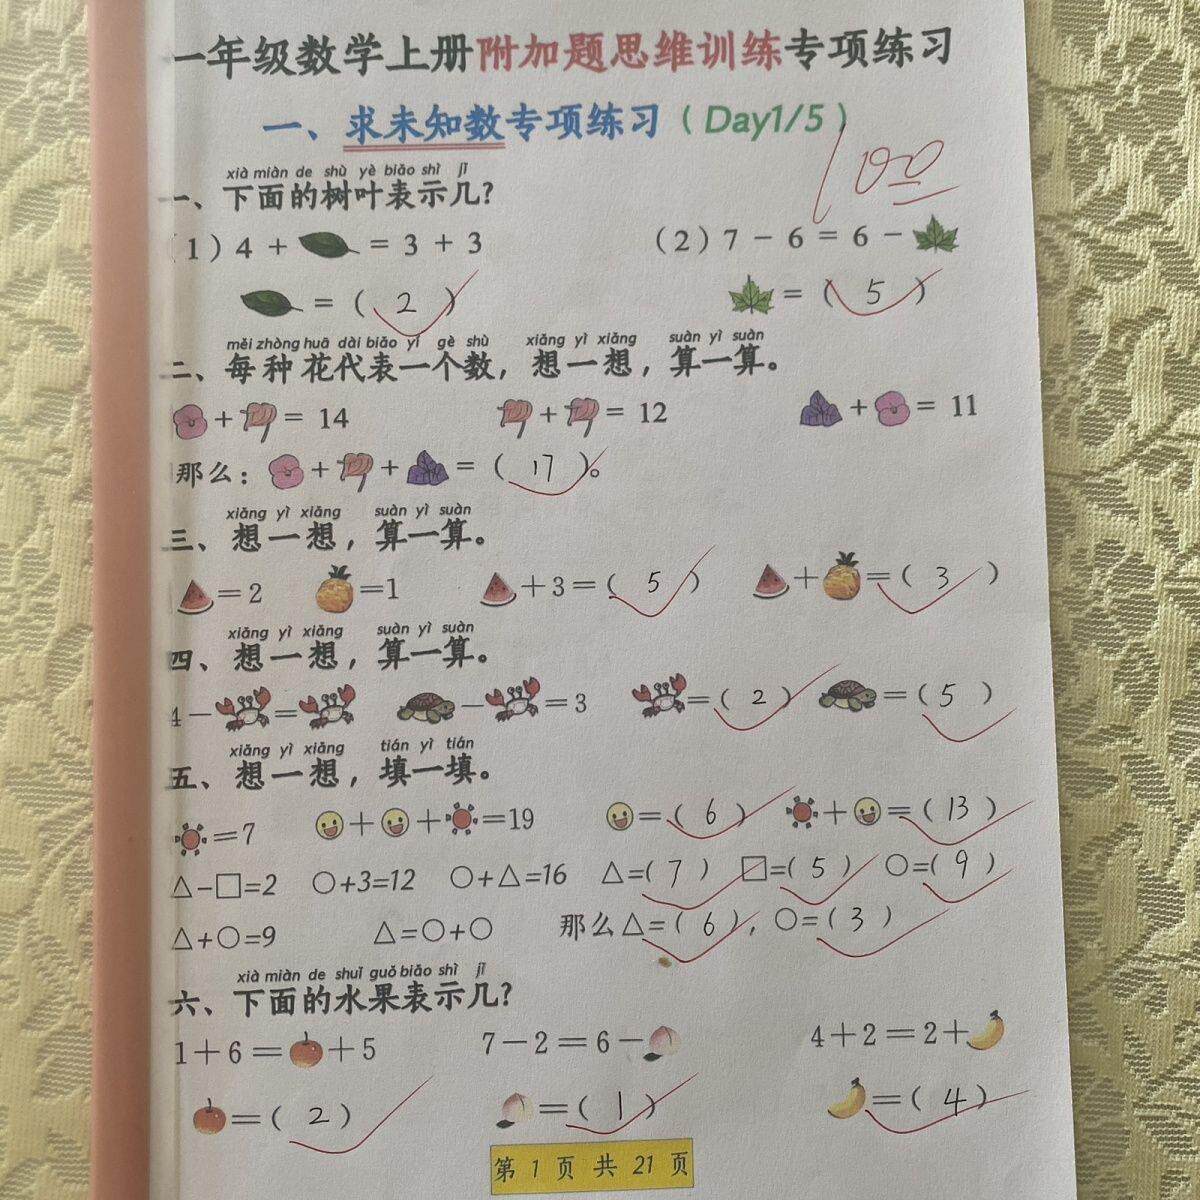 一年级数学上册附加题思维训练专项练习
一、求未知数专项练习（Day1/5）
100
xià miàn de shù yè biǎo shì jǐ
一、下面的树叶表示几?
（1）4 + = 3 + 3 （2）7 - 6 = 6 -
= （ 2 ） = （ 5 ）
měi zhòng huā dài biǎo yī gè shù xiǎng yì xiǎng suàn yì suàn
二、每种花代表一个数，想一想，算一算。
+ = 14 + = 12 + = 11
那么： + + = （ 17 ）。
xiǎng yì xiǎng suàn yì suàn
三、想一想，算一算。
=2 =1 +3=（ 5 ） + =（ 3 ）
xiǎng yì xiǎng suàn yì suàn
四、想一想，算一算。
4- = - =3 =（ 2 ） =（ 5 ）
xiǎng yì xiǎng tián yì tián
五、想一想，填一填。
=7 + + =19 =（ 6 ） + =（ 13 ）
△-□=2 ○+3=12 ○+△=16 △=( 7 ) □=( 5 ) ○=( 9 )
△+○=9 △=○+○ 那么△=( 6 )，○=( 3 )
xià miàn de shuǐ guǒ biǎo shì jǐ
六、下面的水果表示几?
1+6= +5 7-2=6- 4+2=2+
=（ 2 ） =（ 1 ） =（ 4 ）
第 1 页 共 21 页